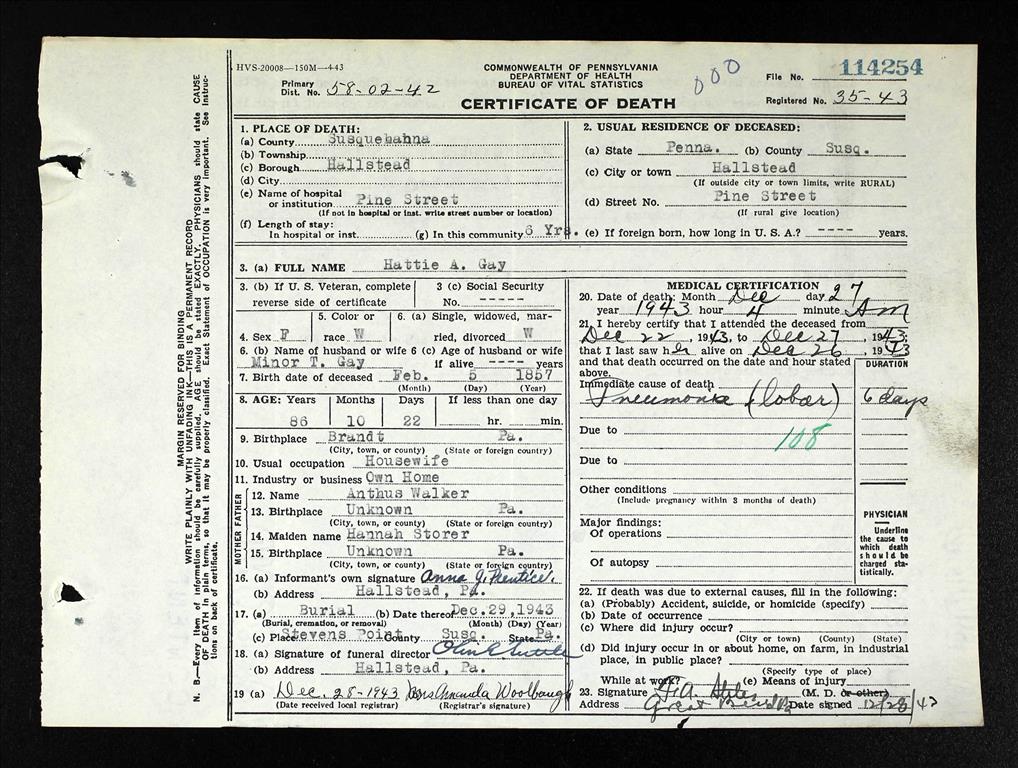 HVS-20008—150M—4-43
COMMONWEALTH OF PENNSYLVANIA
DEPARTMENT OF HEALTH
BUREAU OF VITAL STATISTICS
CERTIFICATE OF DEATH
Primary Dist. No. 58-02-42
000
File No. 114254
Registered No. 35-43
MARGIN RESERVED FOR BINDING
WRITE PLAINLY WITH UNFADING INK—THIS IS A PERMANENT RECORD
N. B.—Every item of information should be carefully supplied. AGE should be stated EXACTLY. PHYSICIANS should state CAUSE
OF DEATH in plain terms, so that it may be properly classified. Exact Statement of OCCUPATION is very important. See instruc-
tions on back of certificate.
1. PLACE OF DEATH:
(a) County Susquehahna
(b) Township
(c) Borough Hallstead
(d) City
(e) Name of hospital
or institution Pine Street
(If not in hospital or inst. write street number or location)
(f) Length of stay:
In hospital or inst. (g) In this community 6 Yrs.
2. USUAL RESIDENCE OF DECEASED:
(a) State Penna. (b) County Susq.
(c) City or town Hallstead
(If outside city or town limits, write RURAL)
(d) Street No. Pine Street
(If rural give location)
(e) If foreign born, how long in U. S. A.? ---- years.
3. (a) FULL NAME Hattie A. Gay
3. (b) If U. S. Veteran, complete
reverse side of certificate
3 (c) Social Security
No. -----
4. Sex F
5. Color or
race W
6. (a) Single, widowed, mar-
ried, divorced W
6. (b) Name of husband or wife
Minor T. Gay
6 (c) Age of husband or wife
if alive ---- years
7. Birth date of deceased Feb. 5 1857
(Month) (Day) (Year)
8. AGE: Years Months Days If less than one day
86 10 22 hr. min.
9. Birthplace Brandt Pa.
(City, town, or county) (State or foreign country)
10. Usual occupation Housewife
11. Industry or business Own Home
FATHER
12. Name Anthus Walker
13. Birthplace Unknown Pa.
(City, town, or county) (State or foreign country)
MOTHER
14. Maiden name Hannah Storer
15. Birthplace Unknown Pa.
(City, town, or county) (State or foreign country)
16. (a) Informant's own signature Anna G. Prentice.
(b) Address Hallstead, Pa.
17. (a) Burial (b) Date thereof Dec. 29, 1943
(Burial, cremation, or removal) (Month) (Day) (Year)
(c) Place Stevens Point County Susq. State Pa.
18. (a) Signature of funeral director
(b) Address Hallstead, Pa.
19 (a) Dec. 28-1943 Mrs Amanda Woolbaugh
(Date received local registrar) (Registrar's signature)
MEDICAL CERTIFICATION
20. Date of death: Month Dec day 27
year 1943 hour 4 minute Am
21. I hereby certify that I attended the deceased from
Dec 22, 1943, to Dec 27, 1943;
that I last saw her alive on Dec 26, 1943
and that death occurred on the date and hour stated
above.
DURATION
Immediate cause of death
Pneumonia (lobar) 6 days
Due to 108
Due to
Other conditions
(Include pregnancy within 3 months of death)
Major findings:
Of operations
Of autopsy
PHYSICIAN
Underline
the cause to
which death
should be
charged sta-
tistically.
22. If death was due to external causes, fill in the following:
(a) (Probably) Accident, suicide, or homicide (specify)
(b) Date of occurrence
(c) Where did injury occur?
(City or town) (County) (State)
(d) Did injury occur in or about home, on farm, in industrial
place, in public place?
(Specify type of place)
While at work? (e) Means of injury
23. Signature (M. D. or other)
Address Great Bend Pa Date signed 12/28/43